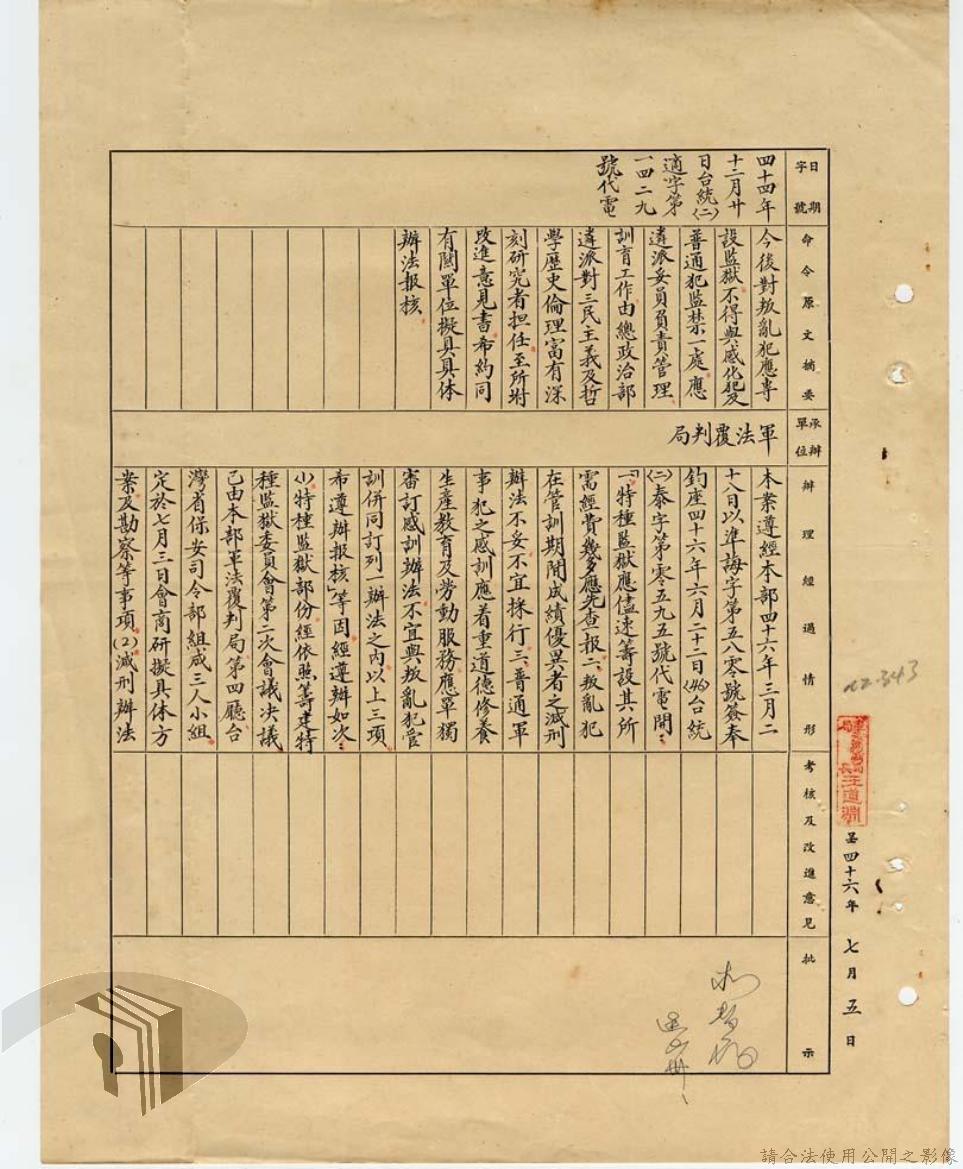 日期
字號
四十四年
十二月廿
日台統(二)
適字第
一四二九
號代電
命令原文摘要
今後對叛亂犯應專
設監獄不得與感化犯及
普通犯監禁一處應
遴派妥員負責管理
訓育工作由總政治部
遴派對三民主義及哲
學歷史倫理富有深
刻研究者担任至所附
改進意見書希約同
有關單位擬具具体
辦法报核
承辦
單位
軍法覆判局
辦理經過情形
本案遵經本部四十六年三月二
十八日以準誨字第五八零號簽奉
鈞座四十六年六月二十二日(46)台統
(二)泰字第零五九五號代電開：
「一、特種監獄應儘速籌設其所
需經費幾多應先查报二、叛亂犯
在管訓期間成績優異者之減刑
辦法不妥不宜採行三、普通軍
事犯之感訓應着重道德修養
生產教育及劳動服務應單獨
審訂感訓辦法不宜與叛亂犯管
訓併同訂列一辦法之內以上三項
希遵辦报核」等因經遵辦如次：
(1)特種監獄部份經依照籌建特
種監獄委員會第二次會議決議
已由本部軍法覆判局第四廳台
灣省保安司令部組成三人小組
定於七月三日會商研擬具体方
案及勘察等事項(2)減刑辦法
考核及改進意見
批示
局長汪道淵
呈四十六年七月五日
請合法使用公開之影像